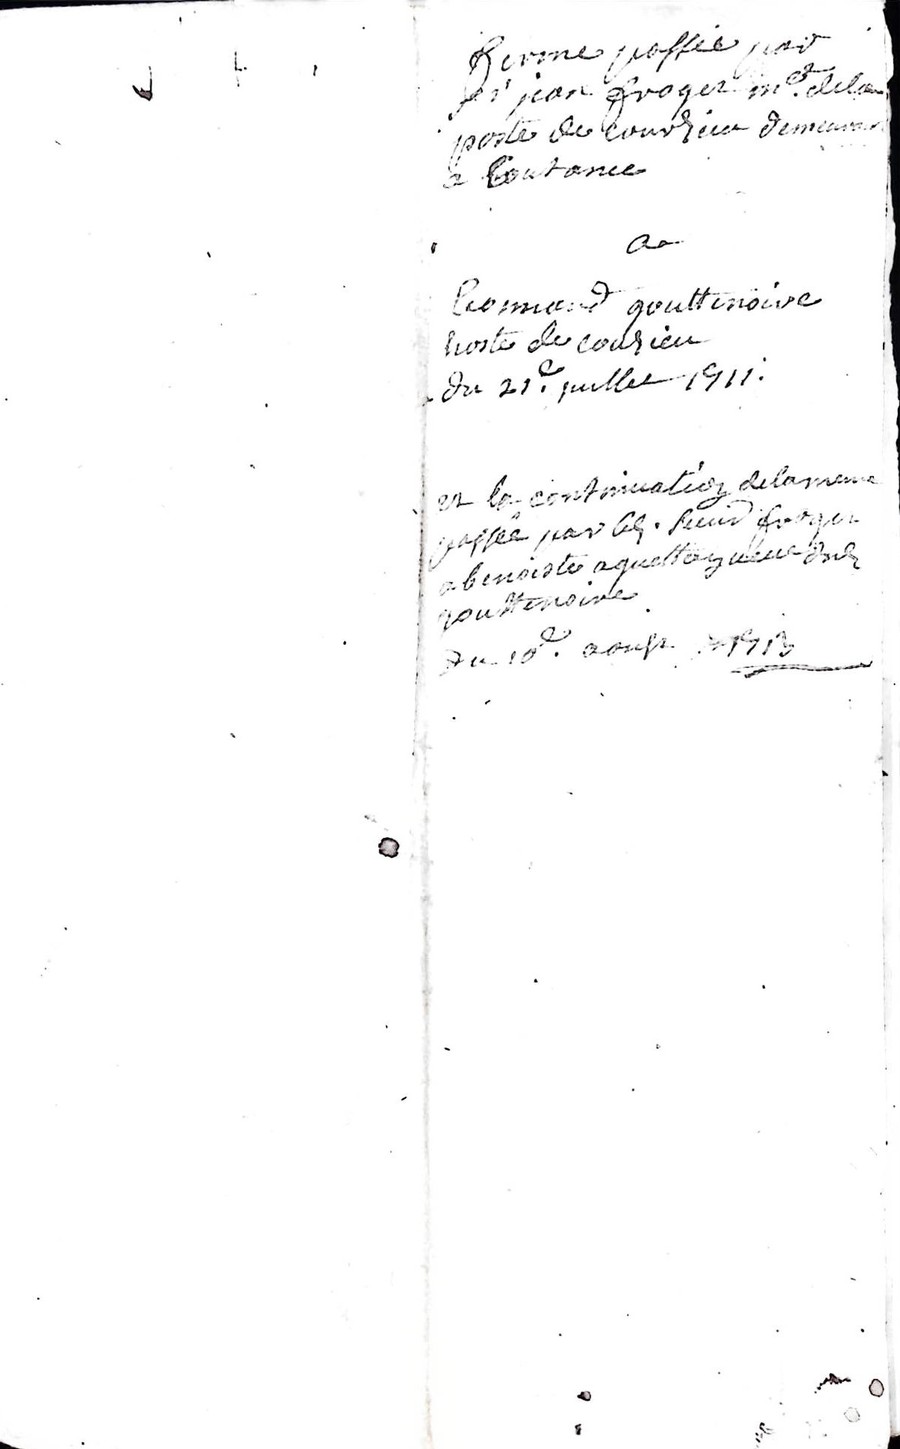 Ferme passée par
Sr jean froger me. dela
poste de courzieu demeurant
a Coutance
a
Leonnard gouttenoire
hoste de courzieu
du 21e. juillet 1711.
et la continuation delameme
passée par led. sieur froger
a benoiste veuve dud
gouttenoire
du 10e. aoust 1713